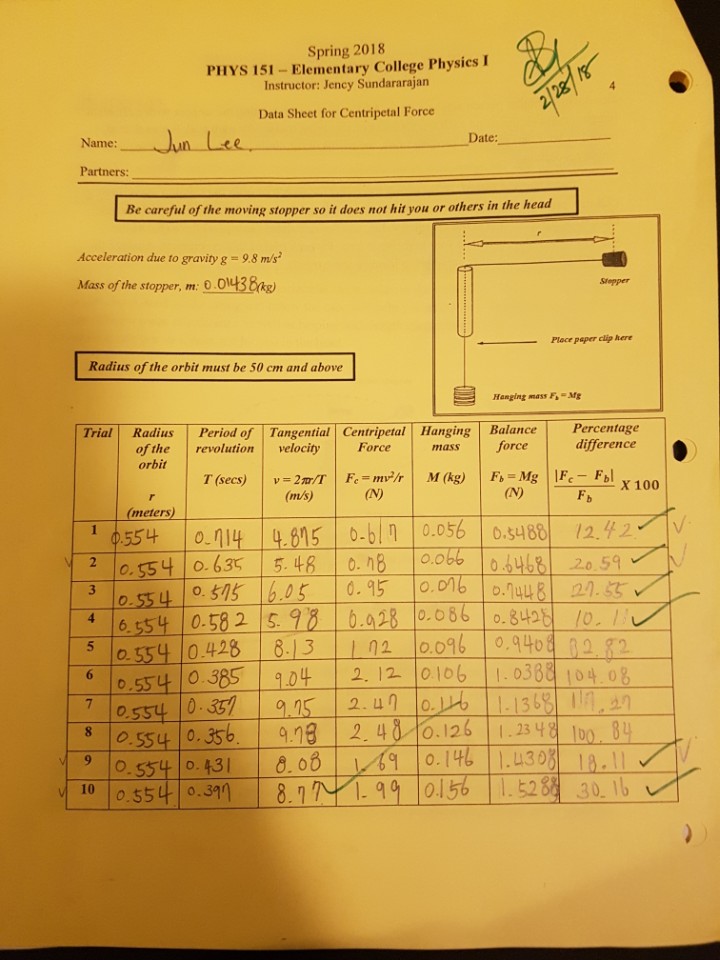 Spring 2018
PHYS 151 – Elementary College Physics I
Instructor: Jency Sundararajan
2/28/18
4
Data Sheet for Centripetal Force
Name: Jun Lee. Date:
Partners:
Be careful of the moving stopper so it does not hit you or others in the head
Acceleration due to gravity g = 9.8 m/s²
Mass of the stopper, m: 0.01438 (kg)
r
Stopper
Place paper clip here
Hanging mass Fb = Mg
Radius of the orbit must be 50 cm and above
Trial Radius of the orbit r (meters) Period of revolution T (secs) Tangential velocity v = 2πr/T (m/s) Centripetal Force Fc = mv²/r (N) Hanging mass M (kg) Balance force Fb = Mg (N) Percentage difference |Fc − Fb| / Fb X 100
1 0.554 0.714 4.875 0.617 0.056 0.5488 12.42
2 0.554 0.635 5.48 0.78 0.066 0.6468 20.59
3 0.554 0.575 6.05 0.95 0.076 0.7448 27.55
4 0.554 0.582 5.98 0.928 0.086 0.8428 10.11
5 0.554 0.428 8.13 1.72 0.096 0.9408 82.82
6 0.554 0.385 9.04 2.12 0.106 1.0388 104.08
7 0.554 0.357 9.75 2.47 0.116 1.1368 117.27
8 0.554 0.356 9.78 2.48 0.126 1.2348 100.84
9 0.554 0.431 8.08 1.69 0.146 1.4308 18.11
10 0.554 0.397 8.77 1.99 0.156 1.5288 30.16